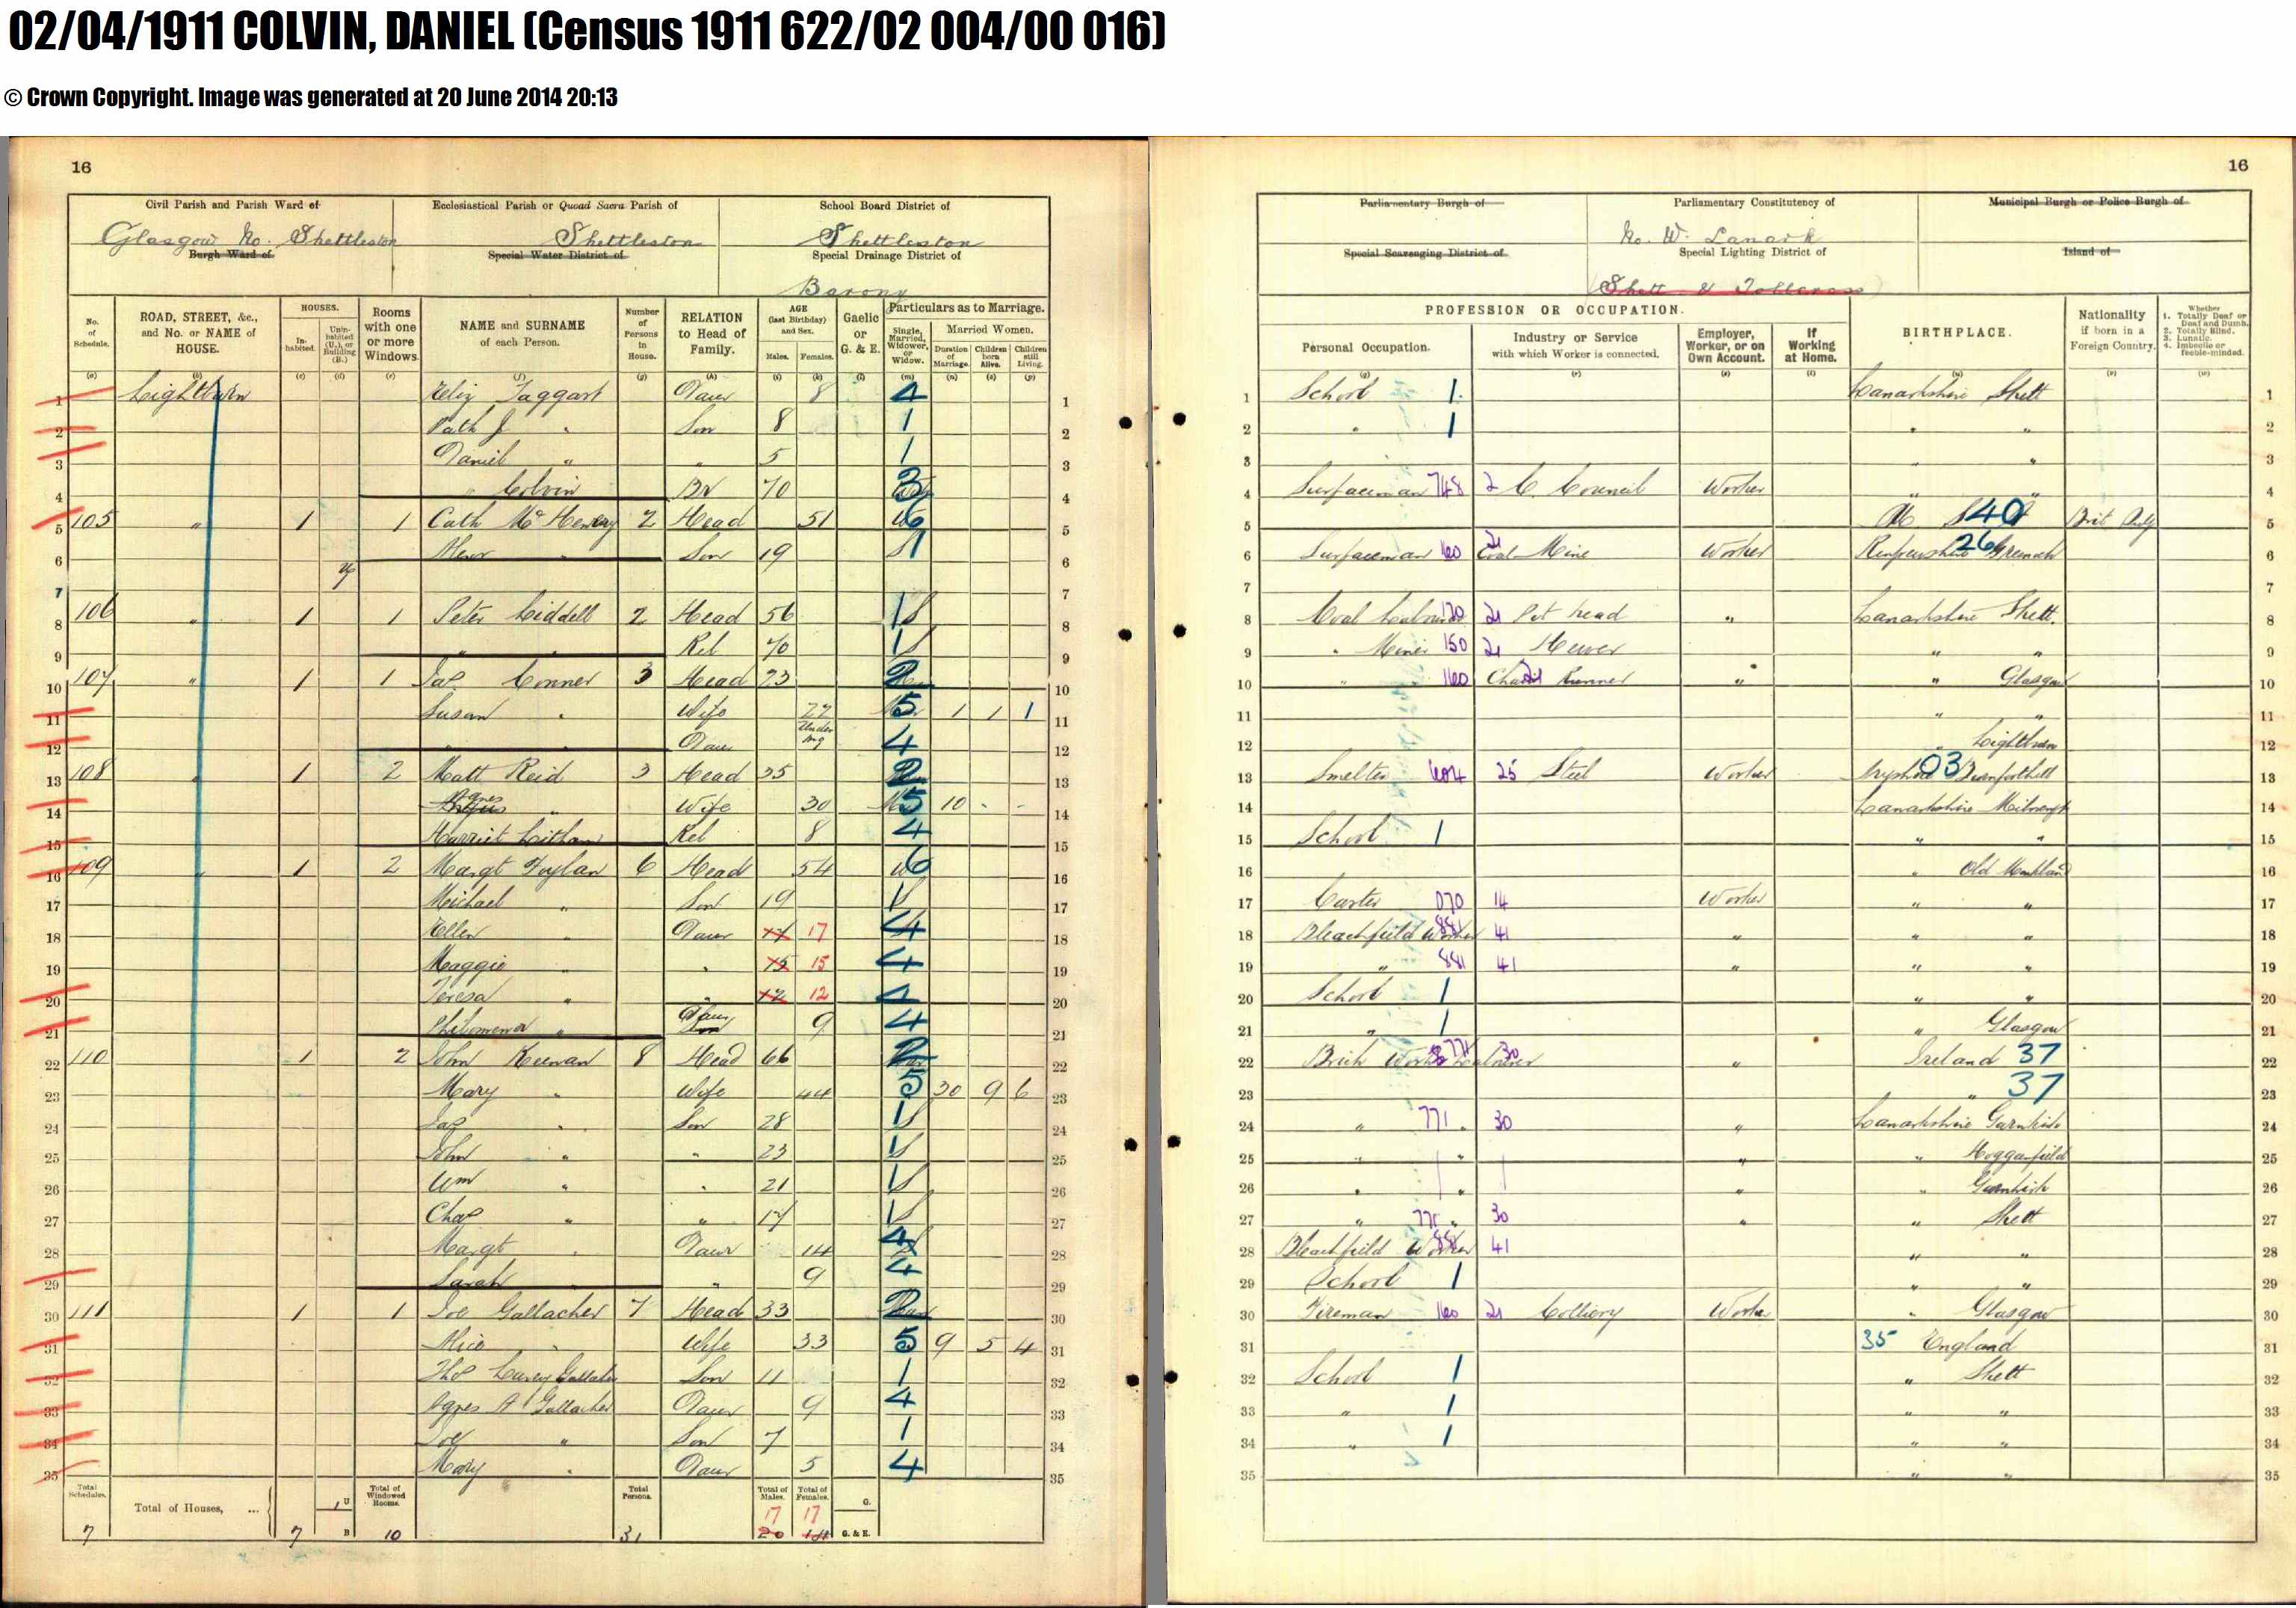 02/04/1911 COLVIN, DANIEL (Census 1911 622/02 004/00 016)
© Crown Copyright. Image was generated at 20 June 2014 20:13
16
Civil Parish and Parish Ward of Ecclesiastical Parish or Quoad Sacra Parish of School Board District of
Glasgow No. Shettleston Shettleston Shettleston
Burgh Ward of Special Water District of Special Drainage District of
Barony
No. of Schedule. ROAD, STREET, &c., and No. or NAME of HOUSE. HOUSES. Inhabited. Uninhabited (U.), or Building (B.) Rooms with one or more Windows. NAME and SURNAME of each Person. Number of Persons in House. RELATION to Head of Family. AGE (last Birthday) and Sex. Males. Females. Gaelic or G. & E. Particulars as to Marriage. Single, Married, Widower, or Widow. Married Women. Duration of Marriage. Children born Alive. Children still Living.
(a) (b) (c) (d) (e) (f) (g) (h) (i) (k) (l) (m) (n) (o) (p)
1 Lightburn Eliz Taggart Daur 8 4 1
2 Path J " Son 8 1 2
3 Daniel " " 5 1 3
4 " Colvin 70 3 4
5 105 " 1 1 Cath McHenery 2 Head 51 6 5
6 " Son 19 1 6
7 7
8 106 " 1 1 Peter Liddell 2 Head 56 1 8
9 " " Rel 70 1 9
10 107 " 1 1 Jas Conner 3 Head 23 2 10
11 Susan " Wife 22 5 1 1 1 11
12 " " Daur Under 4 12
13 108 " 1 2 Matt Reid 3 Head 35 2 13
14 Agnes " Wife 30 5 10 - - 14
15 Harriet Rel 8 4 15
16 109 " 1 2 Margt Foylan 6 Head 54 6 16
17 Michael " Son 19 1 17
18 Ellen " Daur 17 17 4 18
19 Maggie " " 15 15 4 19
20 Teresa " " 12 12 4 20
21 Philomena " Daur 9 4 21
22 110 1 2 John Keenan 8 Head 66 2 22
23 Mary " Wife 44 5 30 9 6 23
24 Jas " Son 28 1 24
25 John " " 23 1 25
26 Wm " " 21 1 26
27 Chas " " 17 1 27
28 Margt " Daur 14 4 28
29 Sarah " " 9 4 29
30 111 1 1 Joe Gallacher 7 Head 33 2 30
31 Alice " Wife 33 5 9 5 4 31
32 Thos Gallacher Son 11 1 32
33 Agnes A Gallacher Daur 9 4 33
34 Joe " Son 7 1 34
35 Mary " Daur 5 4 35
Total Schedules. Total of Houses, ... U B Total of Windowed Rooms. Total Persons. Total of Males. Total of Females. G. G. & E.
7 7 1 10 31 17 20 17 14
16
Parliamentary Burgh of Parliamentary Constitutency of Municipal Burgh or Police Burgh of
No. W. Lanark
Special Scavenging District of Special Lighting District of Island of
(Shett & Tollcross)
PROFESSION OR OCCUPATION. BIRTHPLACE. Nationality if born in a Foreign Country. Whether 1. Totally Deaf or Deaf and Dumb. 2. Totally Blind. 3. Lunatic. 4. Imbecile or feeble-minded.
Personal Occupation. Industry or Service with which Worker is connected. Employer, Worker, or on Own Account. If Working at Home.
(q) (r) (s) (t) (u) (v) (w)
1 School 1 Lanarkshire Shett 1
2 " 1 " " 2
3 " " 3
4 Surfaceman 748 2 C. Council Worker " " 4
5 40 Brit 5
6 Surfaceman 160 21 Coal Mine Worker Renfrewshire 26 Greenock 6
7 7
8 Coal Labourer 170 21 Pit head " Lanarkshire Shett. 8
9 " Miner 150 21 Hewer " " 9
10 " 160 21 " " Glasgow 10
11 " " 11
12 " Lightburn 12
13 Smelter 604 25 Steel Worker Ayrshire 03 13
14 Lanarkshire 14
15 School 1 " " 15
16 " Old Monkland 16
17 Carter 070 14 Worker " " 17
18 Bleachfield Worker 881 41 " " " 18
19 " 881 41 " " " 19
20 School 1 " " 20
21 " 1 " Glasgow 21
22 Brick Works Labourer 771 30 " Ireland 37 22
23 " 37 23
24 " 771 " 30 " Lanarkshire Garnkirk 24
25 " " " " Hogganfield 25
26 " " " " Garnkirk 26
27 " 771 " 30 " " Shett 27
28 Bleachfield Worker 881 41 " " 28
29 School 1 " " 29
30 Fireman 160 21 Colliery Worker " Glasgow 30
31 35 England 31
32 School 1 " Shett 32
33 " 1 " " 33
34 " 1 " " 34
35 " " 35